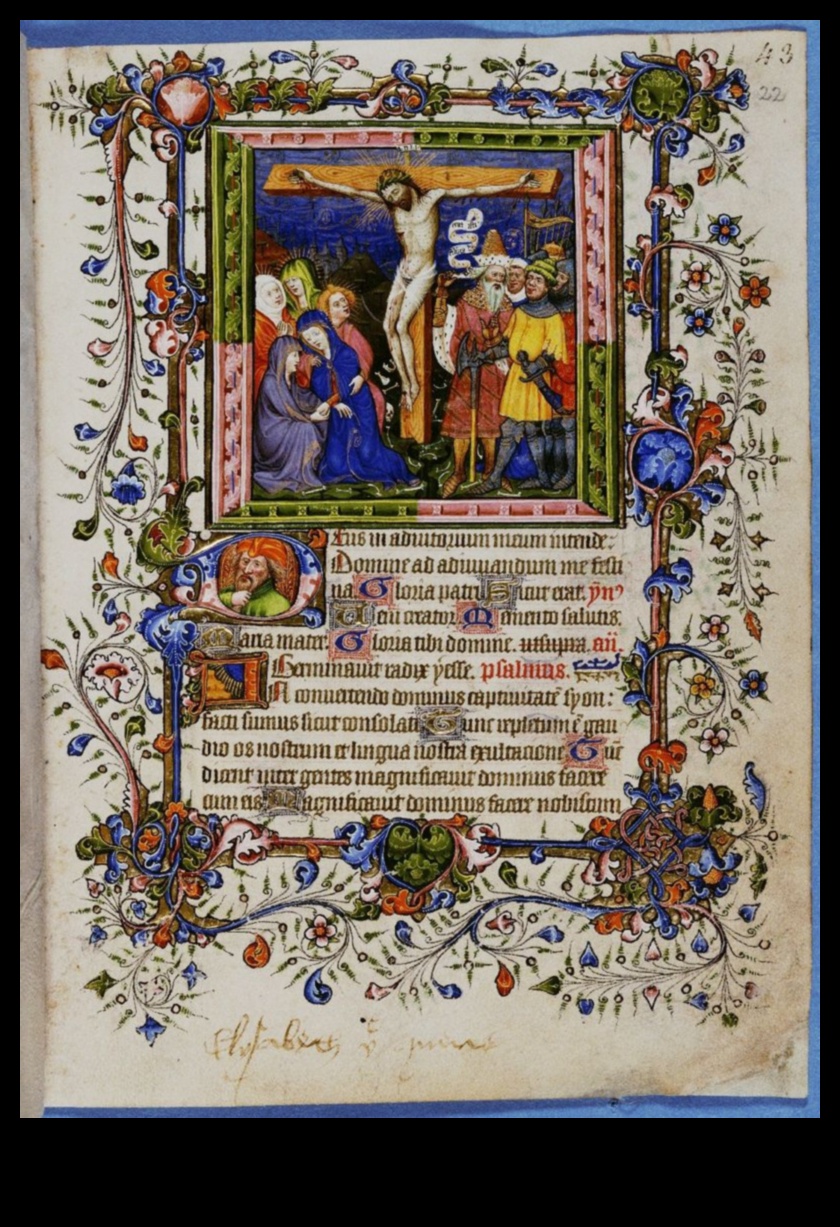 43
22
Deus in adiutorium meum intende:
Domine ad adiuuandum me festi
na. Gloria patri Sicut erat. ẏm̄
Ueni creator. Memento salutis.
Maria mater Gloria tibi domine. ut supra. an̄.
Germinauit radix yesse. psalmus.
IN conuertendo dominus captiuitatē syon:
facti sumus sicut consolati Tunc repletum ē gau
dio os nostrum et lingua nostra exultacione Tūc
dicent inter gentes magnificauit dominus facere
cum eis Magnificauit dominus facere nobiscum
Elysabeth yᵉ